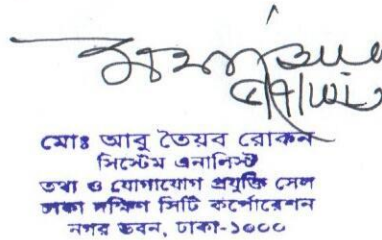 মোঃ আবু তৈয়ব রোকন
সিস্টেম এনালিস্ট
তথ্য ও যোগাযোগ প্রযুক্তি সেল
ঢাকা দক্ষিণ সিটি কর্পোরেশন
নগর ভবন, ঢাকা-১০০০